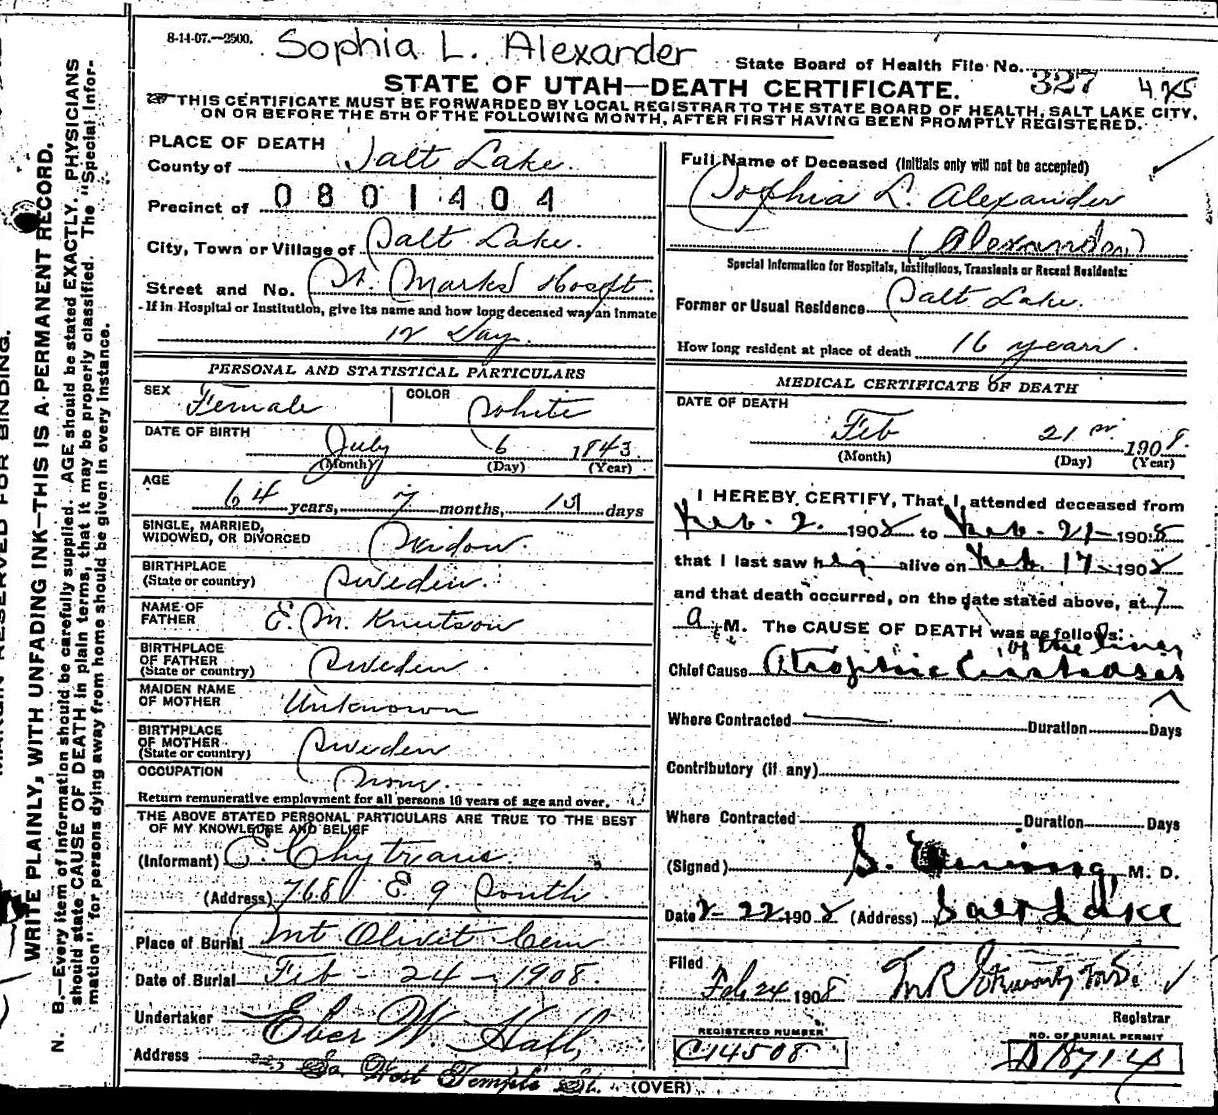 8-14-07.—2500. Sophia L. Alexander
State Board of Health File No. 327 475
STATE OF UTAH—DEATH CERTIFICATE.
THIS CERTIFICATE MUST BE FORWARDED BY LOCAL REGISTRAR TO THE STATE BOARD OF HEALTH, SALT LAKE CITY,
ON OR BEFORE THE 5TH OF THE FOLLOWING MONTH, AFTER FIRST HAVING BEEN PROMPTLY REGISTERED.
PLACE OF DEATH
County of Salt Lake
0801404
Precinct of
City, Town or Village of Salt Lake.
Street and No. St. Marks Hospt.
If in Hospital or Institution, give its name and how long deceased was an Inmate
12 Day.
PERSONAL AND STATISTICAL PARTICULARS
SEX Female COLOR White
DATE OF BIRTH July 6 1843
(Month) (Day) (Year)
AGE 64 years, 7 months, 15 days
SINGLE, MARRIED,
WIDOWED, OR DIVORCED Widow.
BIRTHPLACE
(State or country) Sweden.
NAME OF
FATHER E. M. Knutson
BIRTHPLACE
OF FATHER
(State or country) Sweden.
MAIDEN NAME
OF MOTHER Unknown
BIRTHPLACE
OF MOTHER
(State or country) Sweden
OCCUPATION None.
Return remunerative employment for all persons 10 years of age and over.
THE ABOVE STATED PERSONAL PARTICULARS ARE TRUE TO THE BEST
OF MY KNOWLEDGE AND BELIEF
(Informant) E. Chytraus.
(Address) 768 E 9 South
Place of Burial Mt Olivit Cem
Date of Burial Feb - 24 - 1908.
Undertaker Eber W Hall,
Address So West Temple St.
(OVER)
Full Name of Deceased (Initials only will not be accepted)
Sophia L. Alexander
(Alexander)
Special Information for Hospitals, Institutions, Transients or Recent Residents:
Former or Usual Residence Salt Lake.
How long resident at place of death 16 years.
MEDICAL CERTIFICATE OF DEATH
DATE OF DEATH
Feb 21 1908.
(Month) (Day) (Year)
I HEREBY CERTIFY, That I attended deceased from
Feb. 2. 1908 to Feb. 21 - 1908
that I last saw her alive on Feb. 17 - 1908
and that death occurred, on the date stated above, at 7
a M. The CAUSE OF DEATH was as follows:
of the liver
Chief Cause Atrophic Cirrhosis
Where Contracted Duration Days
Contributory (if any)
Where Contracted Duration Days
(Signed) S. Ewing, M. D.
Date 2-22-1908 (Address) Salt Lake
Filed
Feb 24 1908
Registrar
REGISTERED NUMBER
C14508
NO. OF BURIAL PERMIT
D18714
MARGIN RESERVED FOR BINDING.
WRITE PLAINLY, WITH UNFADING INK—THIS IS A PERMANENT RECORD.
N. B.—Every item of information should be carefully supplied. AGE should be stated EXACTLY. PHYSICIANS
should state CAUSE OF DEATH in plain terms, that it may be properly classified. The "Special Infor-
mation" for persons dying away from home should be given in every instance.